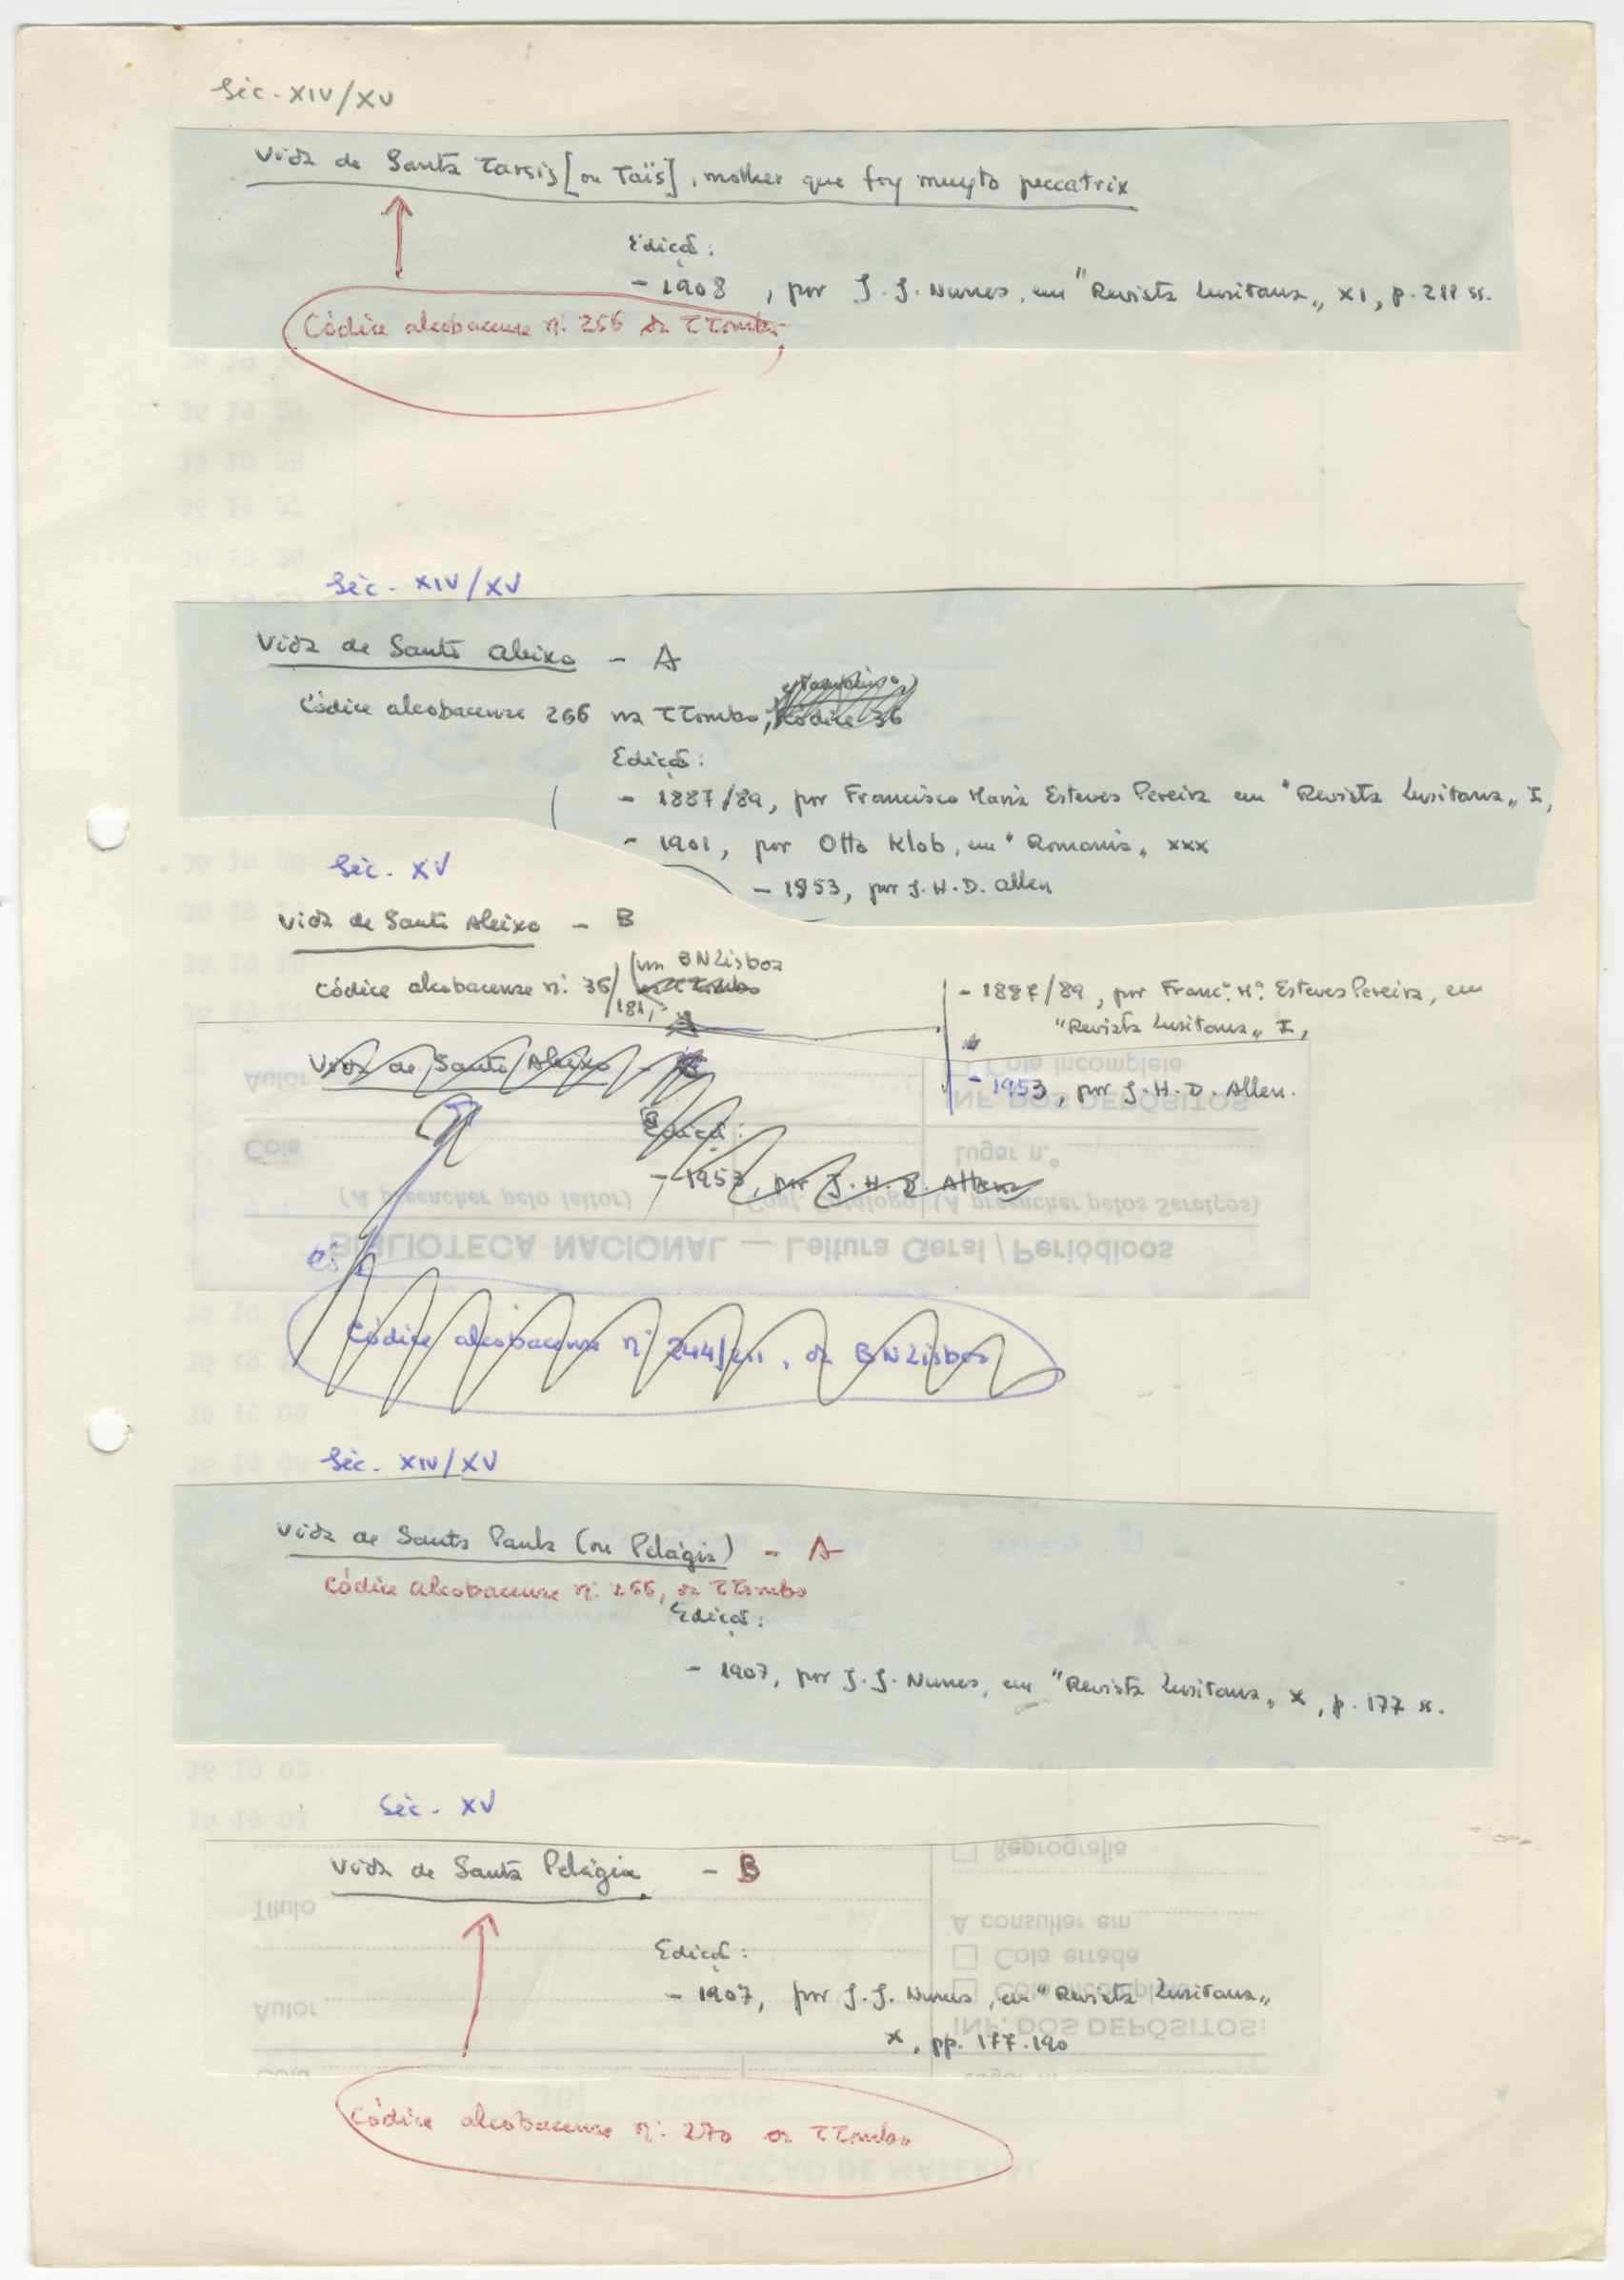 Séc. XIV/XV
Vida de Santa Tarsis [ou Taïs], molher que foy muyto peccatrix
Edição:
- 1908, por J. J. Nunes, em "Revista Lusitana„ XI, p. 211 ss.
Códice alcobacense nº. 266 da T Tombo
Séc. XIV/XV
Vida de Santo Aleixo - A
Códice alcobacense 266 na T Tombo, Códice 36
Edição:
- 1887/89, por Francisco Maria Esteves Pereira em "Revista Lusitana„ I,
- 1901, por Otto Klob, em "Romania„ XXX
- 1953, por J. H. D. Allen
Séc. XV
Vida de Santo Aleixo - B
na BNLisboa
Códice alcobacense nº. 36/ na T Tombo
181,
- 1887/89, por Franc.º M.ª Esteves Pereira, em
"Revista Lusitana„ I,
- 1953, por J. H. D. Allen.
Vida de Santo Aleixo -
Edição:
- 1953, por J. H. D. Allen
Cota incompleta
INF. DOS DEPÓSITOS
Autor
Cota
Lugar n.º
(A preencher pelo leitor)
(A preencher pelos Serviços)
BIBLIOTECA NACIONAL — Leitura Geral / Periódicos
Códice alcobacense nº 244/211, da BNLisboa
Séc. XIV/XV
Vida de Santa Paula (ou Pelágia) - A
Códice alcobacense nº. 266, da T Tombo
Edição:
- 1907, por J. J. Nunes, em "Revista Lusitana„ X, p. 177 ss.
Séc. XV
Vida de Santa Pelágia - B
Edição:
- 1907, por J. J. Nunes, em "Revista Lusitana„
X, pp. 177-190
Reprografia
Título
A consultar em
Cota errada
Cota incompleta
Autor
INF. DOS DEPÓSITOS:
Códice alcobacense nº. 270 da T Tombo